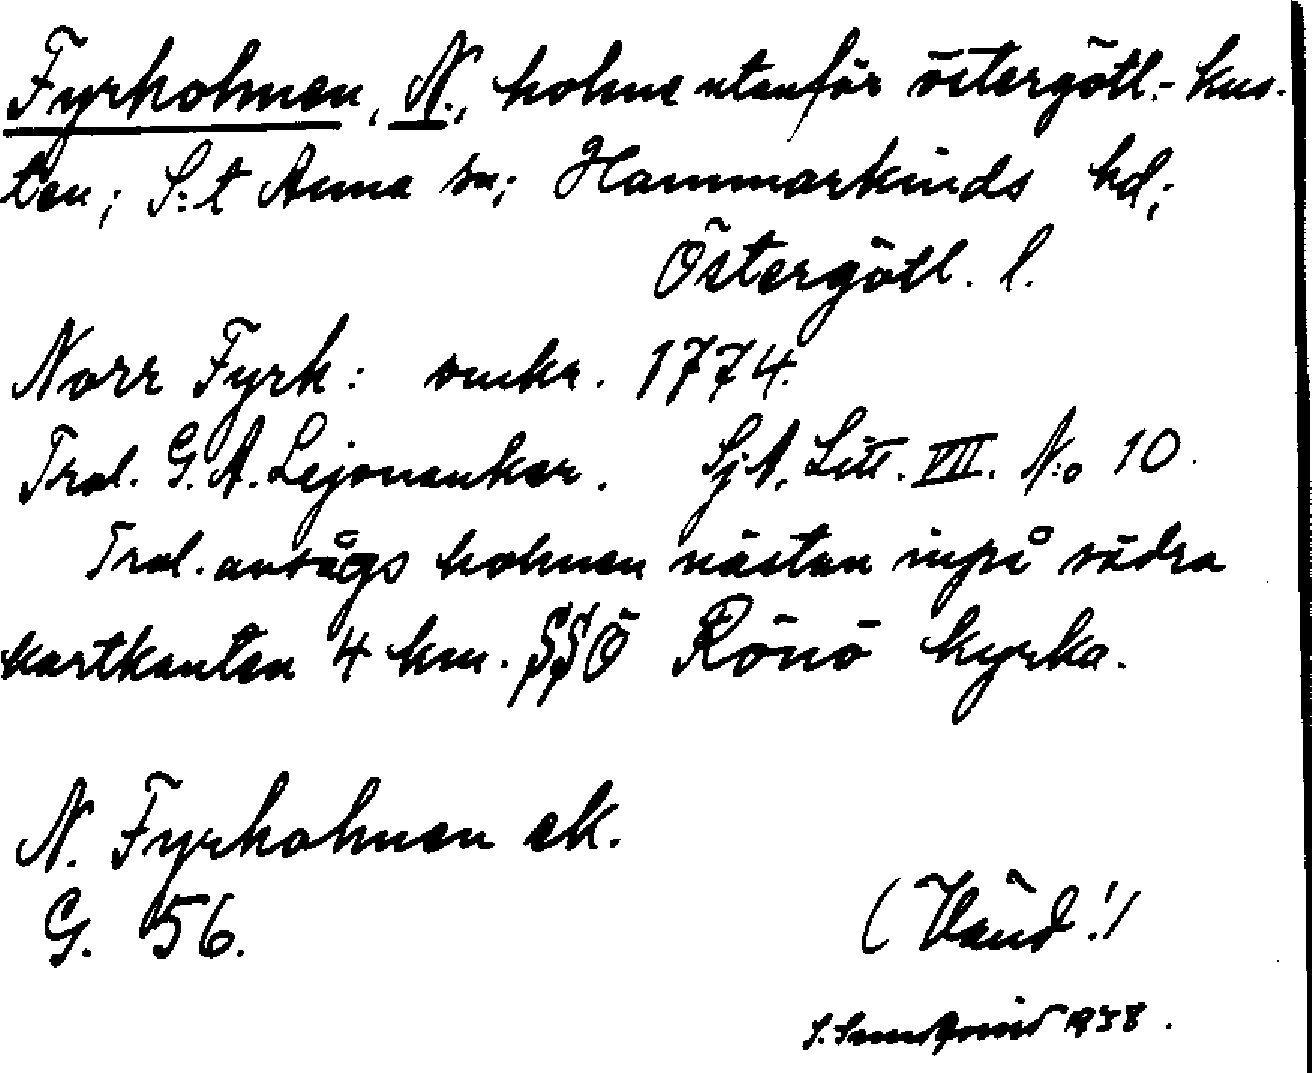 Fyrholmen, N., holme utanför östergötl.- kus-
ten; S:t Anna sn; Hammarkinds hd;
Östergötl. l.
Norr Fyrk: omkr. 1774.
Trol. G. A. Lejonankar. SjA. Litt. VII. N:o 10.
Trol. avsågs holmen nästan inpå södra
kartkanten 4 km. SSÖ Rönö kyrka.
N. Fyrholmen ek.
G. 56.
(Vänd!)
1938.